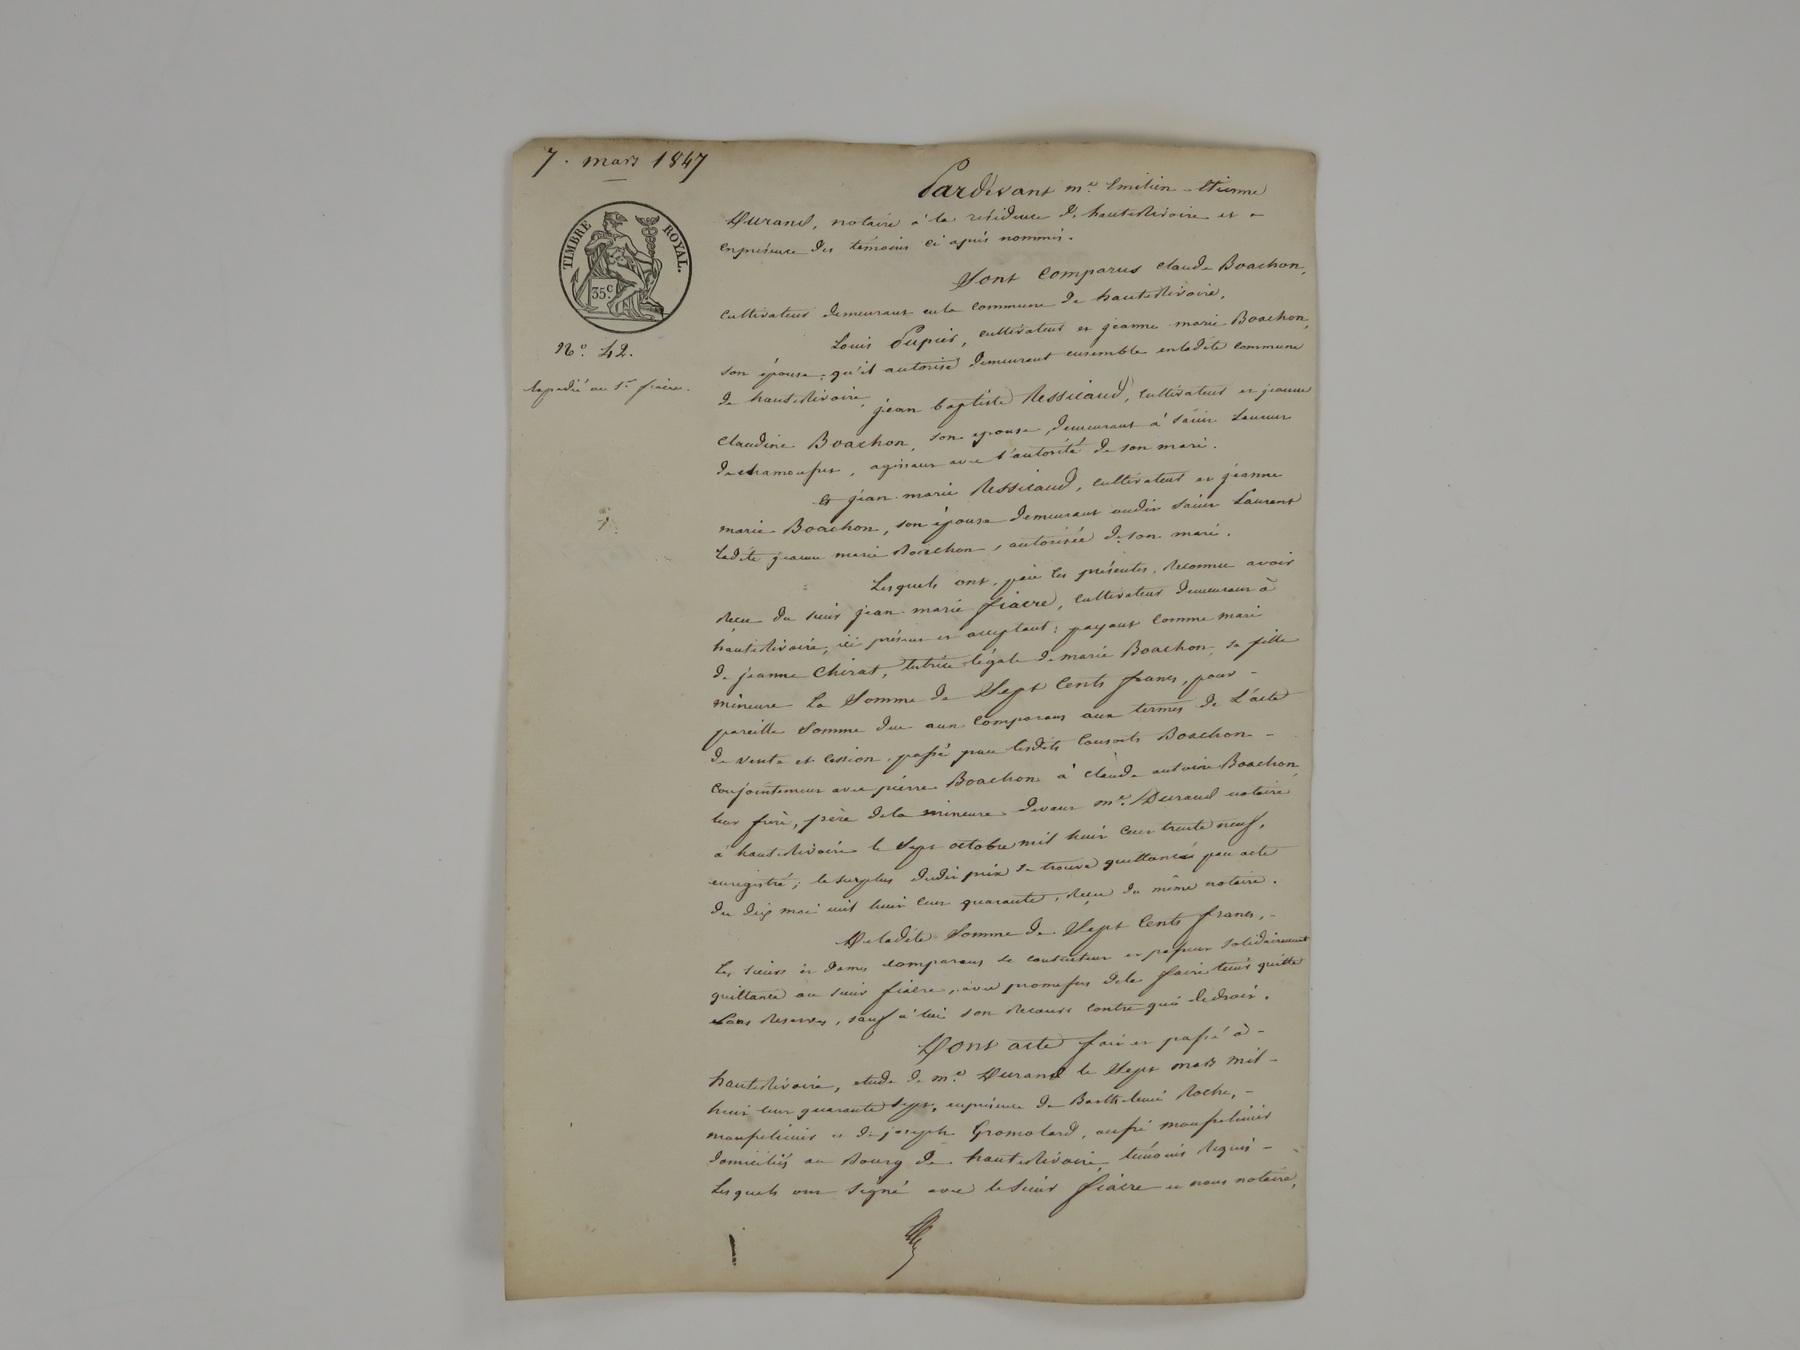 7. mars 1847
TIMBRE ROYAL.
35c.
No. 42.
Expedié au Sr. fiacre.
Pardevant me. Emilien-Etienne
Durand, notaire à la résidence de hauterivoire et
enprésence des témoins ci après nommés.
Sont Comparus Claude Boachon,
cultivateur demeurant enla commune de hauterivoire,
Louis Pupier, cultivateur et jeanne marie Boachon,
son épouse, qu'il autorise demeurant ensemble enladite commune
de hauterivoire,
jean baptiste Ressicaud, cultivateur et jeanne
Claudine Boachon, son epouse, demeurant à Saint Laurent
dechamousset, agissant avec l'autorité de son mari.
Et jean marie Ressicaud, cultivateur et jeanne
marie Boachon, son épouse demeurant audit Saint Laurent
Ladite jeanne marie Boachon, autorisée de son mari.
Lesquels ont, par les présentes, reconnu avoir
Reçu du sieur jean marie fiacre, cultivateur demeurant à
hauterivoire, ici présent et acceptant; payant comme mari
de jeanne Chirat, tutrice légale de marie Boachon, sa fille
mineure La Somme de Sept Cents francs, pour
pareille Somme due aux Comparans aux termes de L'acte
de vente et cession, passé par lesdits Consorts Boachon
Conjointement avec pierre Boachon à Claude antoine Boachon,
leur frère, père dela mineure devant me. Durand notaire
à hauterivoire le Sept octobre mil huit Cent trente neuf,
enregistré; le surplus dudit prix se trouve quittancé par acte
du dix mai mil huit Cent quarante, Reçu du même notaire.
De ladite Somme de Sept Cents francs,
Les sieurs et dames comparans se contentent et passent solidairement
quittance au sieur fiacre, avec promesses dele faire tenir quitte
Sans Reserves, sauf à lui son Recours contre qui dedroit.
Dont acte fait et passé à
hauterivoire, etude de me. Durand le Sept mars mil
huit cent quarante sept, enprésence de Barthelemi Roche,
mousselinier et de joseph Gromolard, aussi mousselinier
domiciliés au Bourg de hauterivoire, témoins Requis
Lesquels ont Signé avec le sieur fiacre et nous notaire,